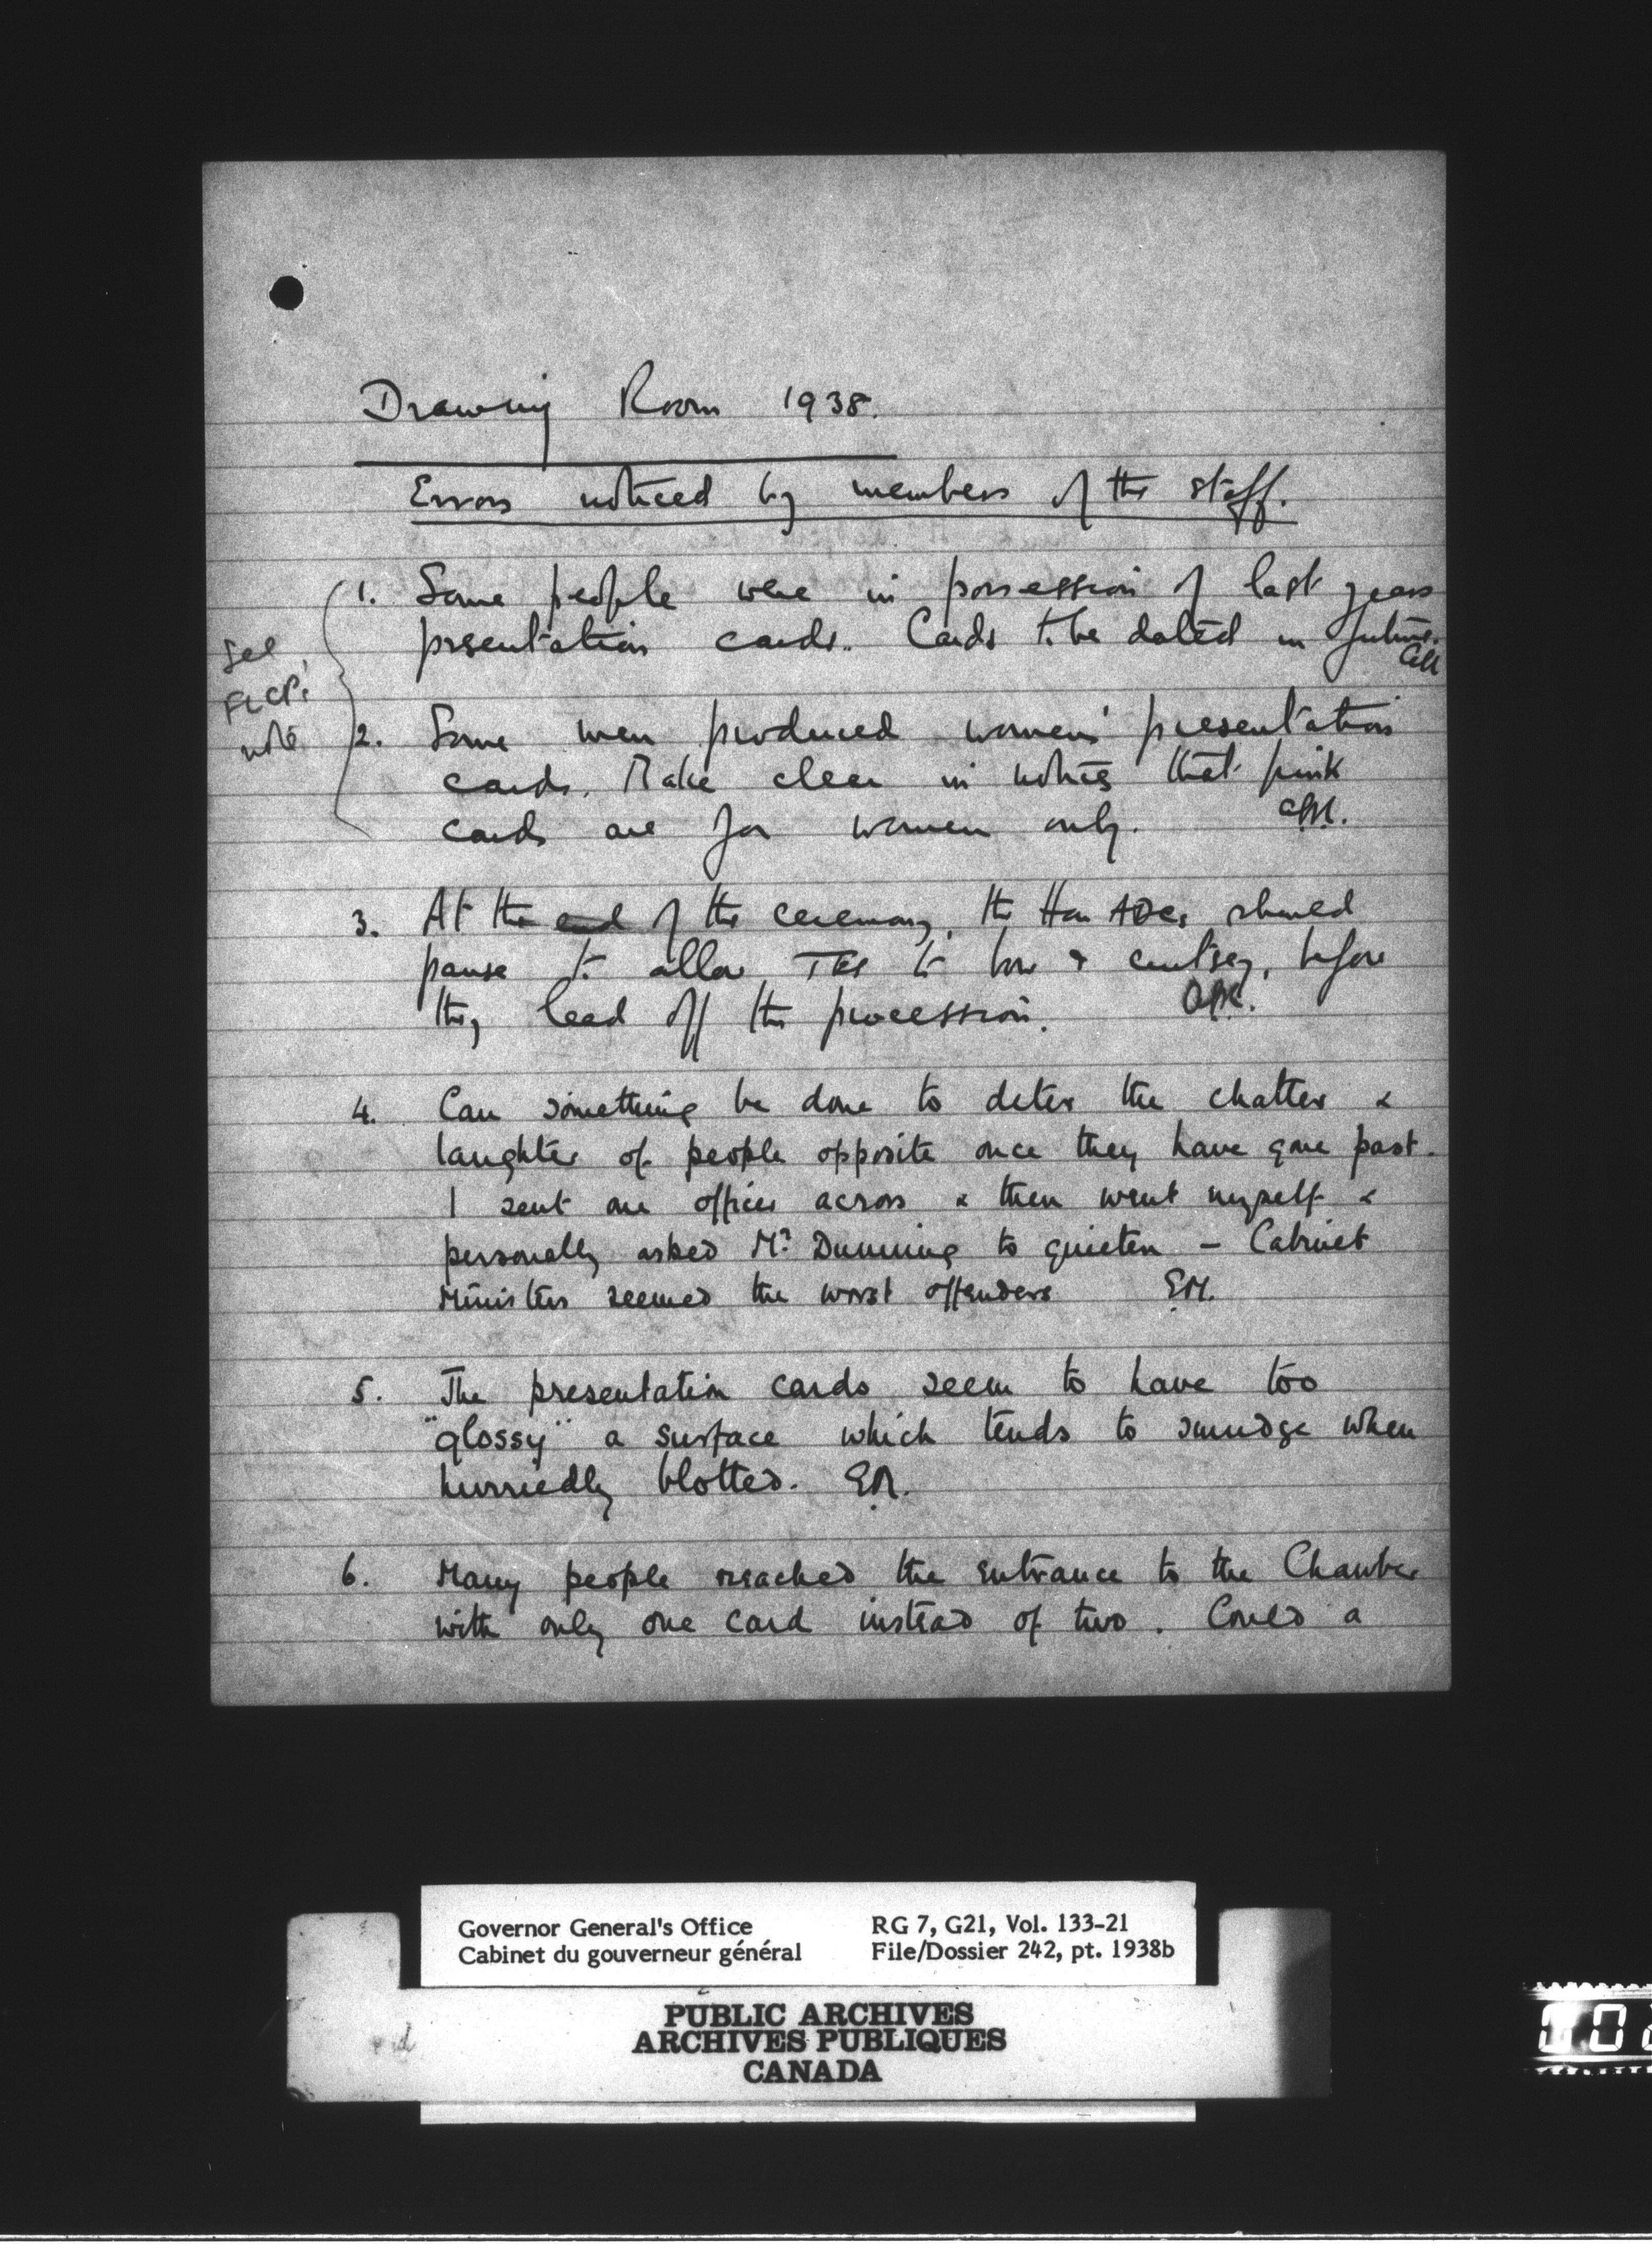 Drawing Room 1938.
Errors noticed by members of the staff.
1. Some people were in possession of last years
presentation cards. Cards to be dated in future.
See
FLCP's
note
2. Some men produced women's presentation
cards. Make clear in notes that pink
cards are for women only.
3. At the end of the ceremony, the Hon ADCs should
pause to allow TEs to bow & curtsey, before
they lead off the procession.
4. Can something be done to deter the chatter &
laughter of people opposite once they have gone past.
I sent one officer across & then went myself &
personally asked Mr Dunning to quieten - Cabinet
Ministers seemed the worst offenders E.M.
5. The presentation cards seem to have too
"glossy" a surface which tends to smudge when
hurriedly blotted. E.M.
6. Many people reached the entrance to the Chamber
with only one card instead of two. Could a
Governor General's Office RG 7, G21, Vol. 133-21
Cabinet du gouverneur général File/Dossier 242, pt. 1938b
PUBLIC ARCHIVES
ARCHIVES PUBLIQUES
CANADA